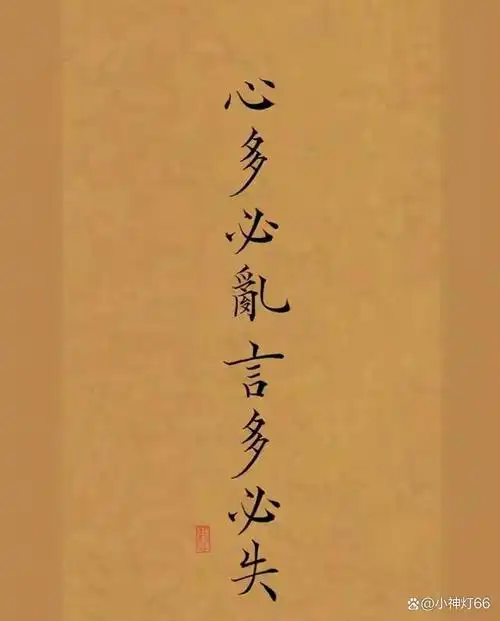 心多必亂言多必失
小神灯66